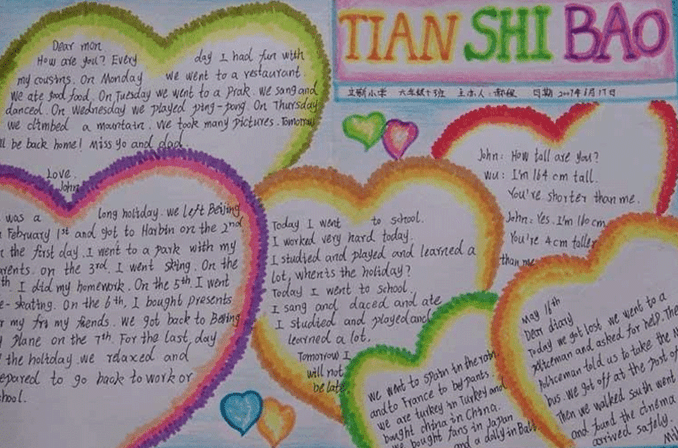 TIAN SHI BAO
小学 六年级 班 主办人: 日期 2007年6月17日
Dear mom
How are you? Every day I had fun with
my cousins. On Monday we went to a restaurant.
We ate good food. On Tuesday we went to a prak. We sang and
danced. On Wednesday we played ping-pong. On Thursday
we climbed a mountain. We took many pictures. Tomorrow
ll be back home! Miss yo and dad.
Love.
John
was a long holiday. we left Beijing
February 1st and got to Harbin on the 2nd
the first day. I went to a park with my
arents. on the 3rd. I went sking. On the
th. I did my homework. On the 5th. I went
e-skating. On the 6th, I bought presents
r my fri my friends. we got back to Beijing
plane on the 7th. For the last day
the holtday. we rdaxed and
epared to go back to work or
chool.
Today I went to school.
I worked very hard today.
I studied and played and learned a
lot, when's the holiday?
Today I went to school
I sang and daced and ate
I studied and played and
learned a lot.
Tomorrow I
will not
be late
John: How tall are you?
wu: I'm 164 cm tall.
You're shorter than me.
John: Yes. I'm 160 cm
You're 4 cm taller
than me
we went to spain in the rain
and to France to by pants
we are turkey in Turkey and
bught china in China.
we bought fans in Japan
and a dolly in Bali
May 16th
Dear diary
Today we got lost. we went to a
policeman and asked for help. The
policeman told us to take the N
bus. we got off at the post of
Then we walked south went
and fund the cinema
arrived safely.